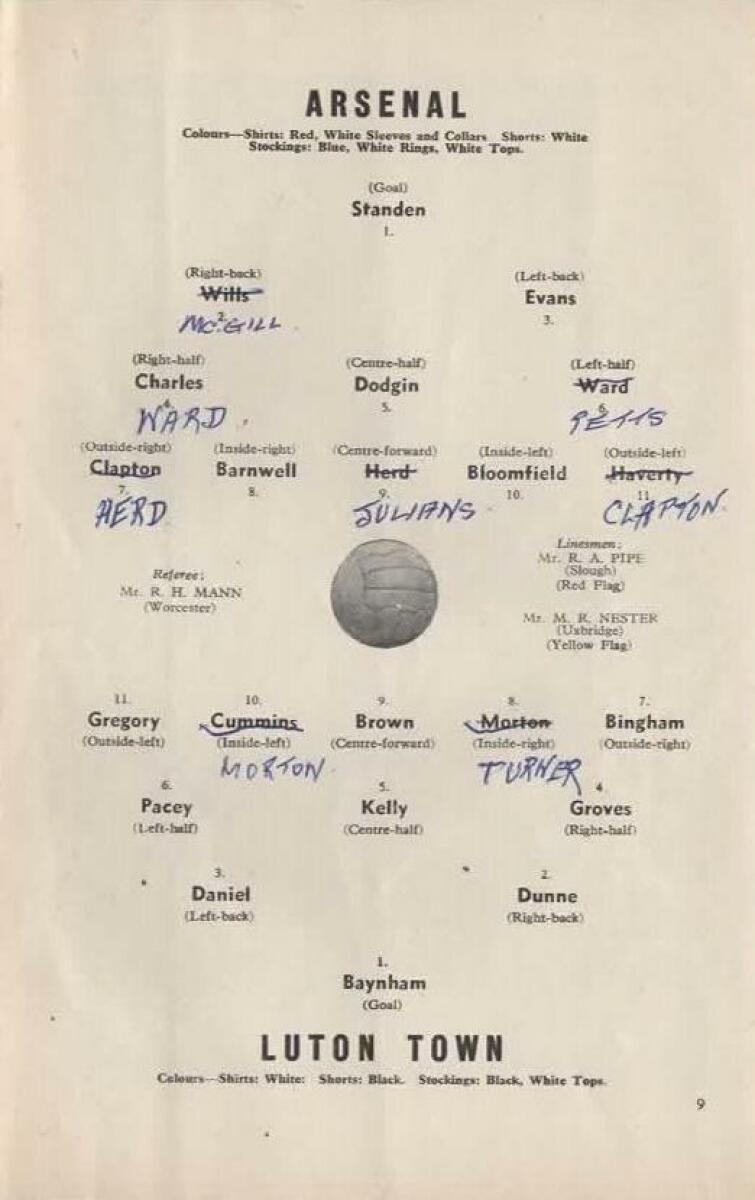 ARSENAL
Colours—Shirts: Red, White Sleeves and Collars Shorts: White
Stockings: Blue, White Rings, White Tops.
(Goal)
Standen
1.
(Right-back) (Left-back)
Wills Evans
2. 3.
McGILL
(Right-half) (Centre-half) (Left-half)
Charles Dodgin Ward
4. 5. 6.
WARD PETTS
(Outside-right) (Inside-right) (Centre-forward) (Inside-left) (Outside-left)
Clapton Barnwell Herd Bloomfield Haverty
7. 8. 9. 10. 11
HERD JULIANS CLAPTON
Referee:
Mr. R. H. MANN
(Worcester)
Linesmen:
Mr. R. A. PIPE
(Slough)
(Red Flag)
Mr. M. R. NESTER
(Uxbridge)
(Yellow Flag)
11. 10. 9. 8. 7.
Gregory Cummins Brown Morton Bingham
(Outside-left) (Inside-left) (Centre-forward) (Inside-right) (Outside-right)
MORTON TURNER
6. 5. 4.
Pacey Kelly Groves
(Left-half) (Centre-half) (Right-half)
3. 2.
Daniel Dunne
(Left-back) (Right-back)
1.
Baynham
(Goal)
LUTON TOWN
Colours—Shirts: White: Shorts: Black. Stockings: Black, White Tops.
9